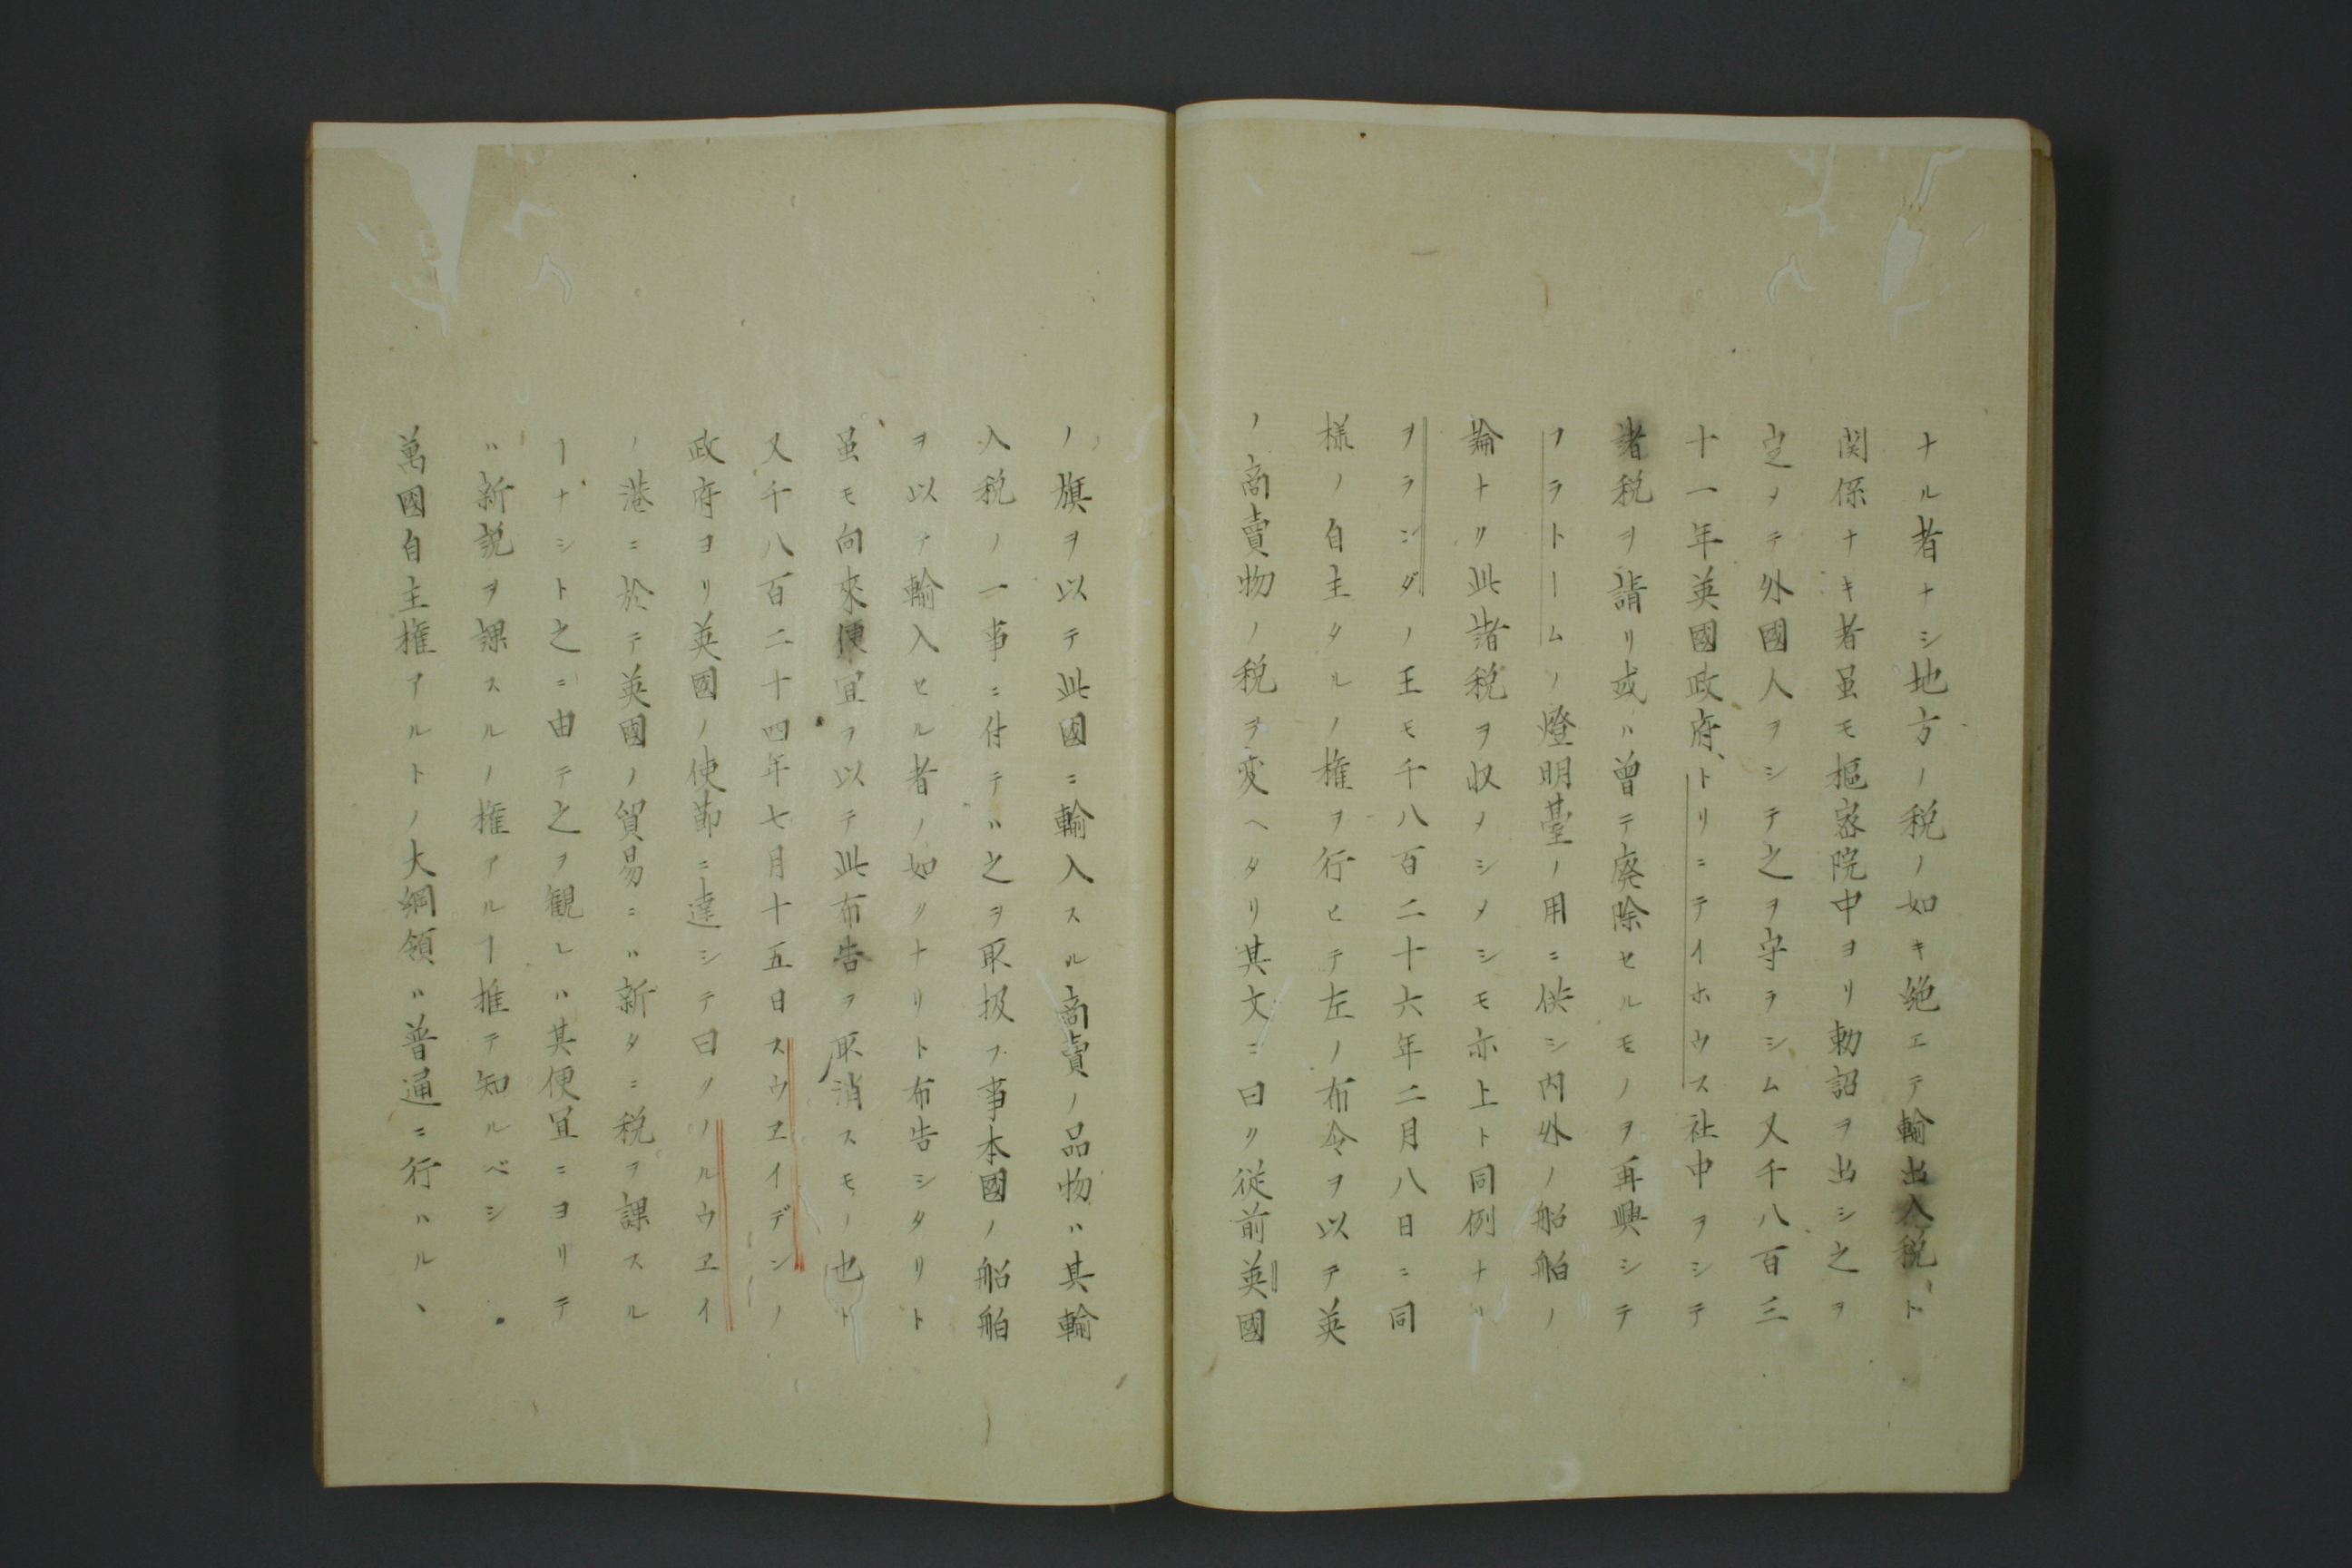 ナル者ナシ地方ノ税ノ如キ絶エテ輸出入税ト
関係ナキ者虽モ枢密院中ヨリ勅詔ヲ出シ之ヲ
定メテ外國人ヲシテ之ヲ守ラシム又千八百三
十一年英國政府、トリニテイホウス社中ヲシテ
諸税ヲ請リ或ハ曽テ廃除セルモノヲ再興シテ
フラトームノ燈明臺ノ用ニ供シ内外ノ船舶ノ
論トリ此諸税ヲ収メシメシモ亦上ト同例ナリ
ヲランダノ王モ千八百二十六年二月八日ニ同
様ノ自主タルノ権ヲ行ヒテ左ノ布令ヲ以テ英
ノ商賣物ノ税ヲ変ヘタリ其文ニ曰ク従前英國
ノ旗ヲ以テ此國ニ輸入スル商賣ノ品物ハ其輸
入税ノ一事ニ付テハ之ヲ取扱フ事本國ノ船舶
ヲ以テ輸入セル者ノ如クナリト布告シタリト
虽モ向來便宜ヲ以テ此布告ヲ取消スモノ也ト
又千八百二十四年七月十五日スウヱイデンノ
政府ヨリ英國ノ使節ニ達シテ曰クノルウヱイ
ノ港ニ於テ英國ノ貿易ニハ新タニ税ヲ課スル
ーナシト之ニ由テ之ヲ観レハ其便宜ニヨリテ
ハ新説ヲ課スルノ権アルー推テ知ルベシ
萬國自主権アルトノ大綱領ハ普通ニ行ハル、